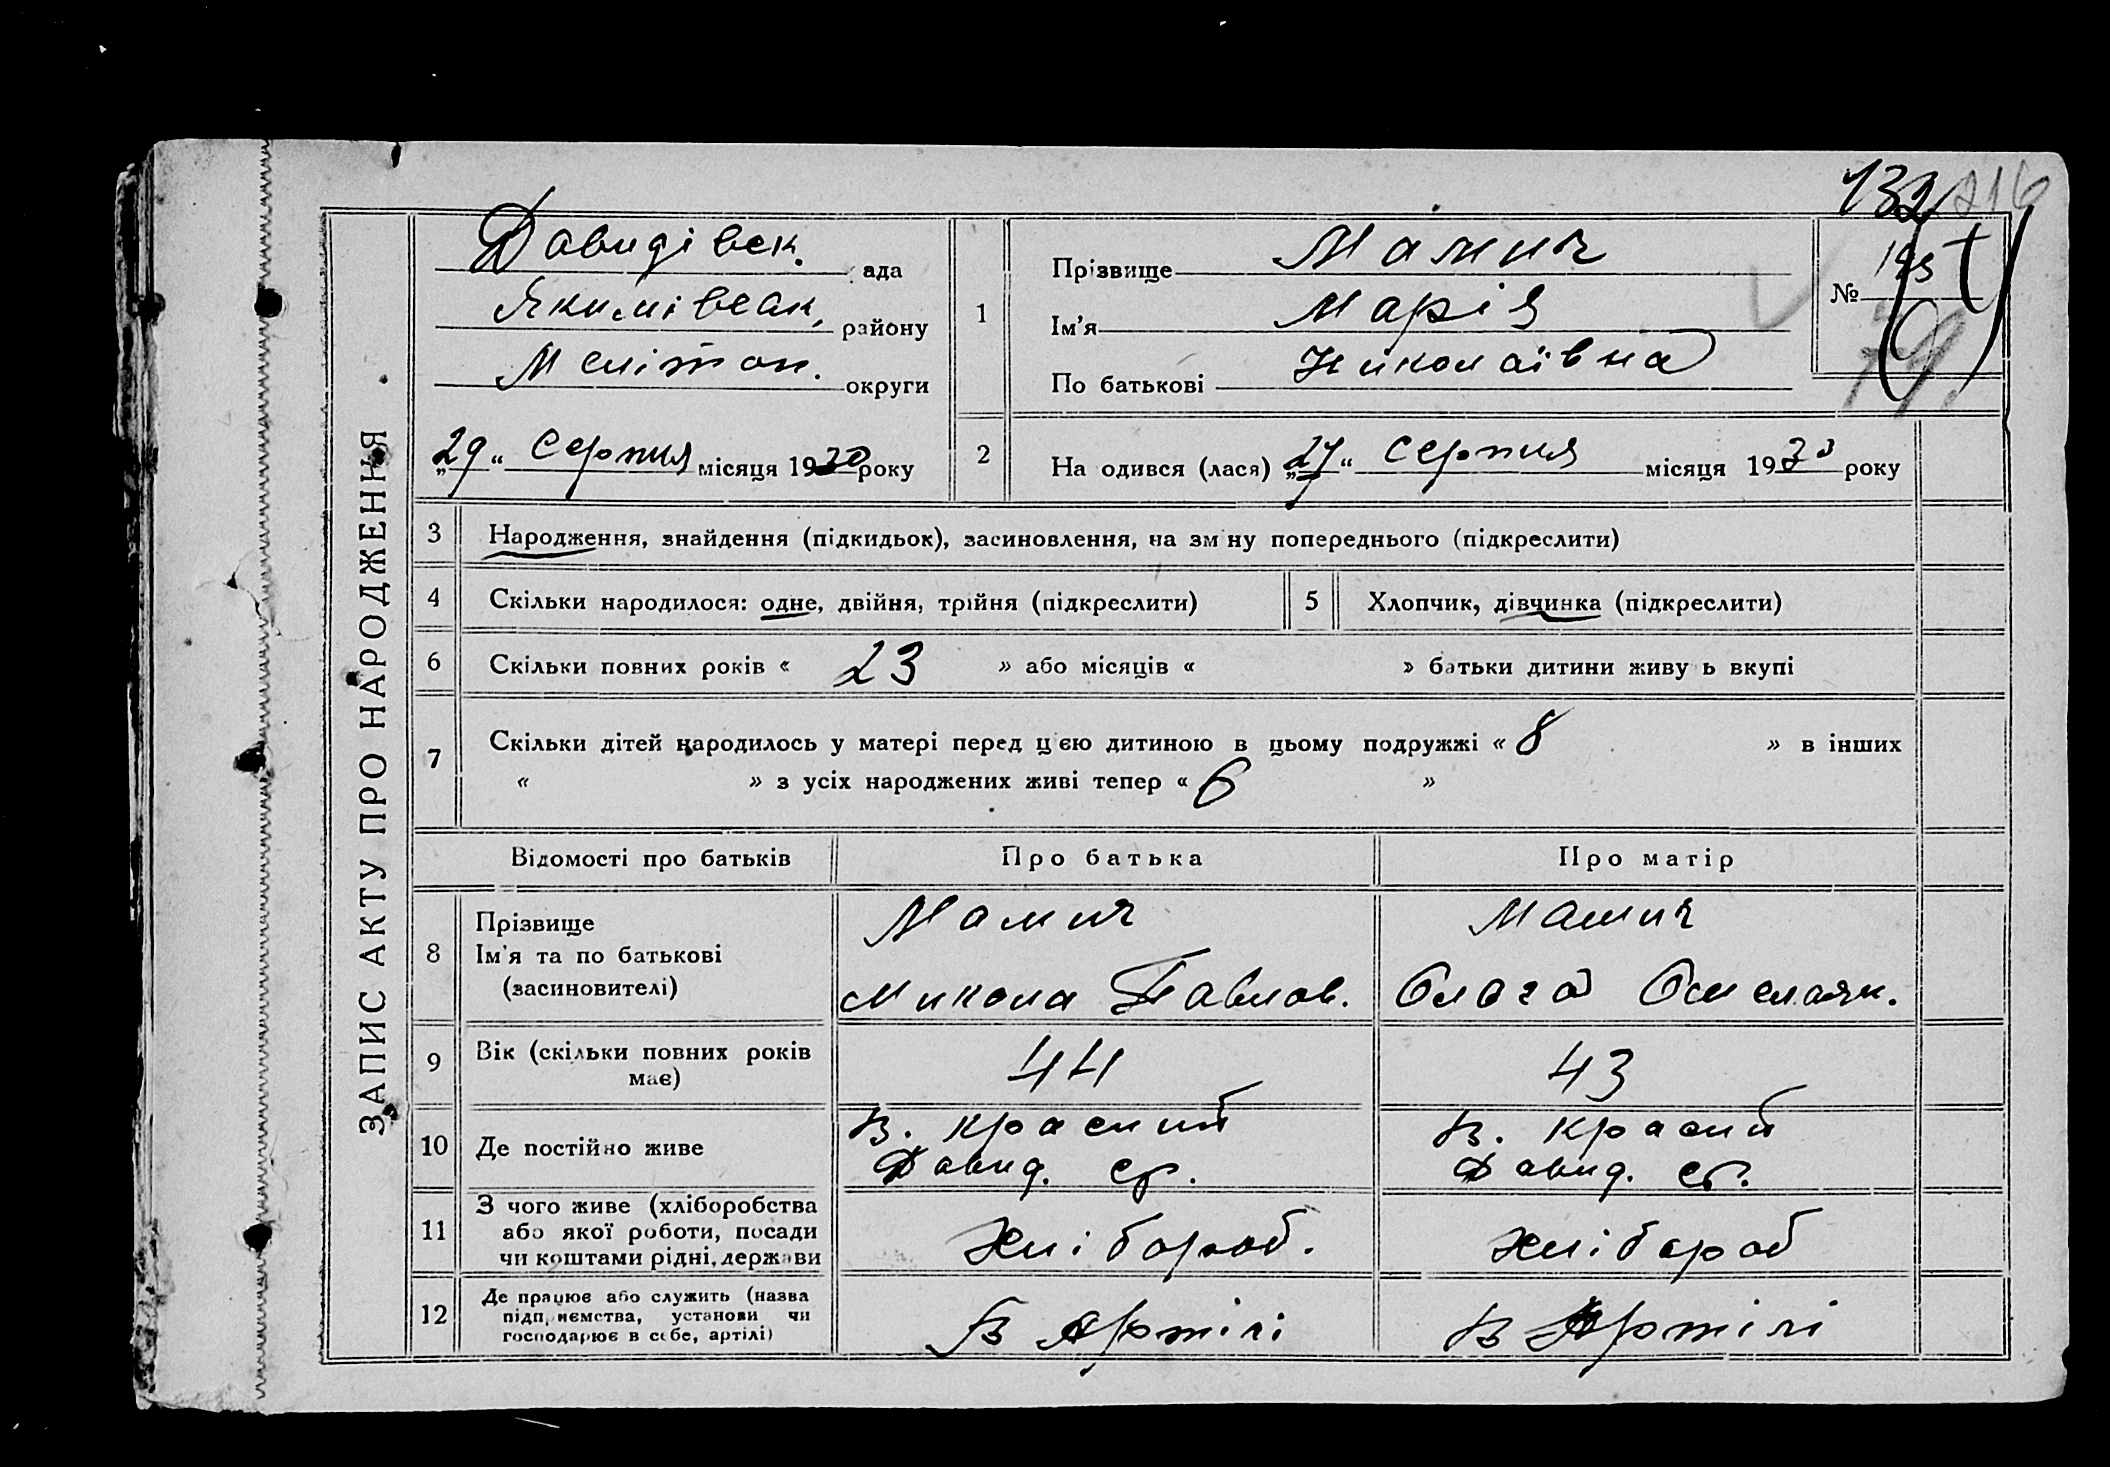 ЗАПИС АКТУ ПРО НАРОДЖЕННЯ
132
Давидівск. ада
Якимівськ. району
Мелітоп. округи
„29“ серпня місяця 1930 року
1
Прізвище Мамич
Ім'я Марія
По батькові Николаївна
№
2
На одився (лася) „27“ серпня місяця 1930 року
3 Народження, знайдення (підкидьок), засиновлення, на зм ну попереднього (підкреслити)
4 Скільки народилося: одне, двійня, трійня (підкреслити)
5 Хлопчик, дівчинка (підкреслити)
6 Скільки повних років « 23 » або місяців « » батьки дитини живу ь вкупі
7 Скільки дітей народилось у матері перед цією дитиною в цьому подружжі « 8 » в інших
« » з усіх народжених живі тепер « 6 »
Відомості про батьків Про батька Про матір
8 Прізвище
Ім'я та по батькові
(засиновителі)
Мамич
Микола Павлов.
Мамич
Ольга Омелян.
9 Вік (скільки повних років
має)
44
43
10 Де постійно живе
в. Красний
Давид. ср.
в. Красний
Давид. ср.
11 З чого живе (хліборобства
або якої роботи, посади
чи коштами рідні, держави
Хлібороб.
Хлібороб
12 Де працює або служить (назва
підприємства, установи чи
господарює в себе, артілі)
В Артілі
В Артілі